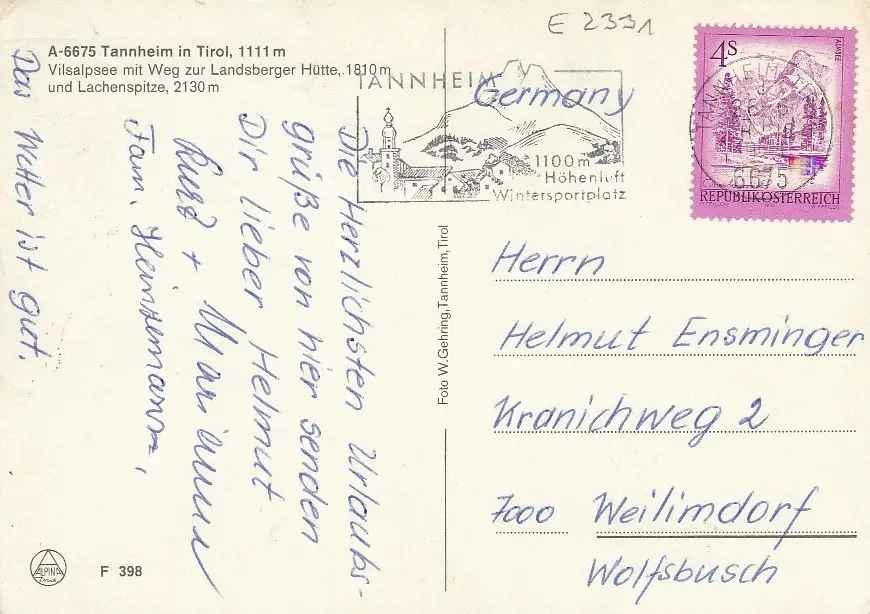 E 2331
A-6675 Tannheim in Tirol, 1111 m
Vilsalpsee mit Weg zur Landsberger Hütte, 1810 m
und Lachenspitze, 2130 m
TANNHEIM
1100 m
Höhenluft
Wintersportplatz
4S
ALMSEE
REPUBLIK ÖSTERREICH
TANNHEIM
6675
Germany
Die Herzlichsten Urlaubs-
grüße von hier senden
Dir lieber Helmut
Kurt + Marianne
Fam. Heinzemann,
Das Wetter ist gut.
Foto W. Gehring, Tannheim, Tirol
Herrn
Helmut Ensminger
Kranichweg 2
7000 Weilimdorf
Wolfsbusch
ALPINA
Druck
F 398